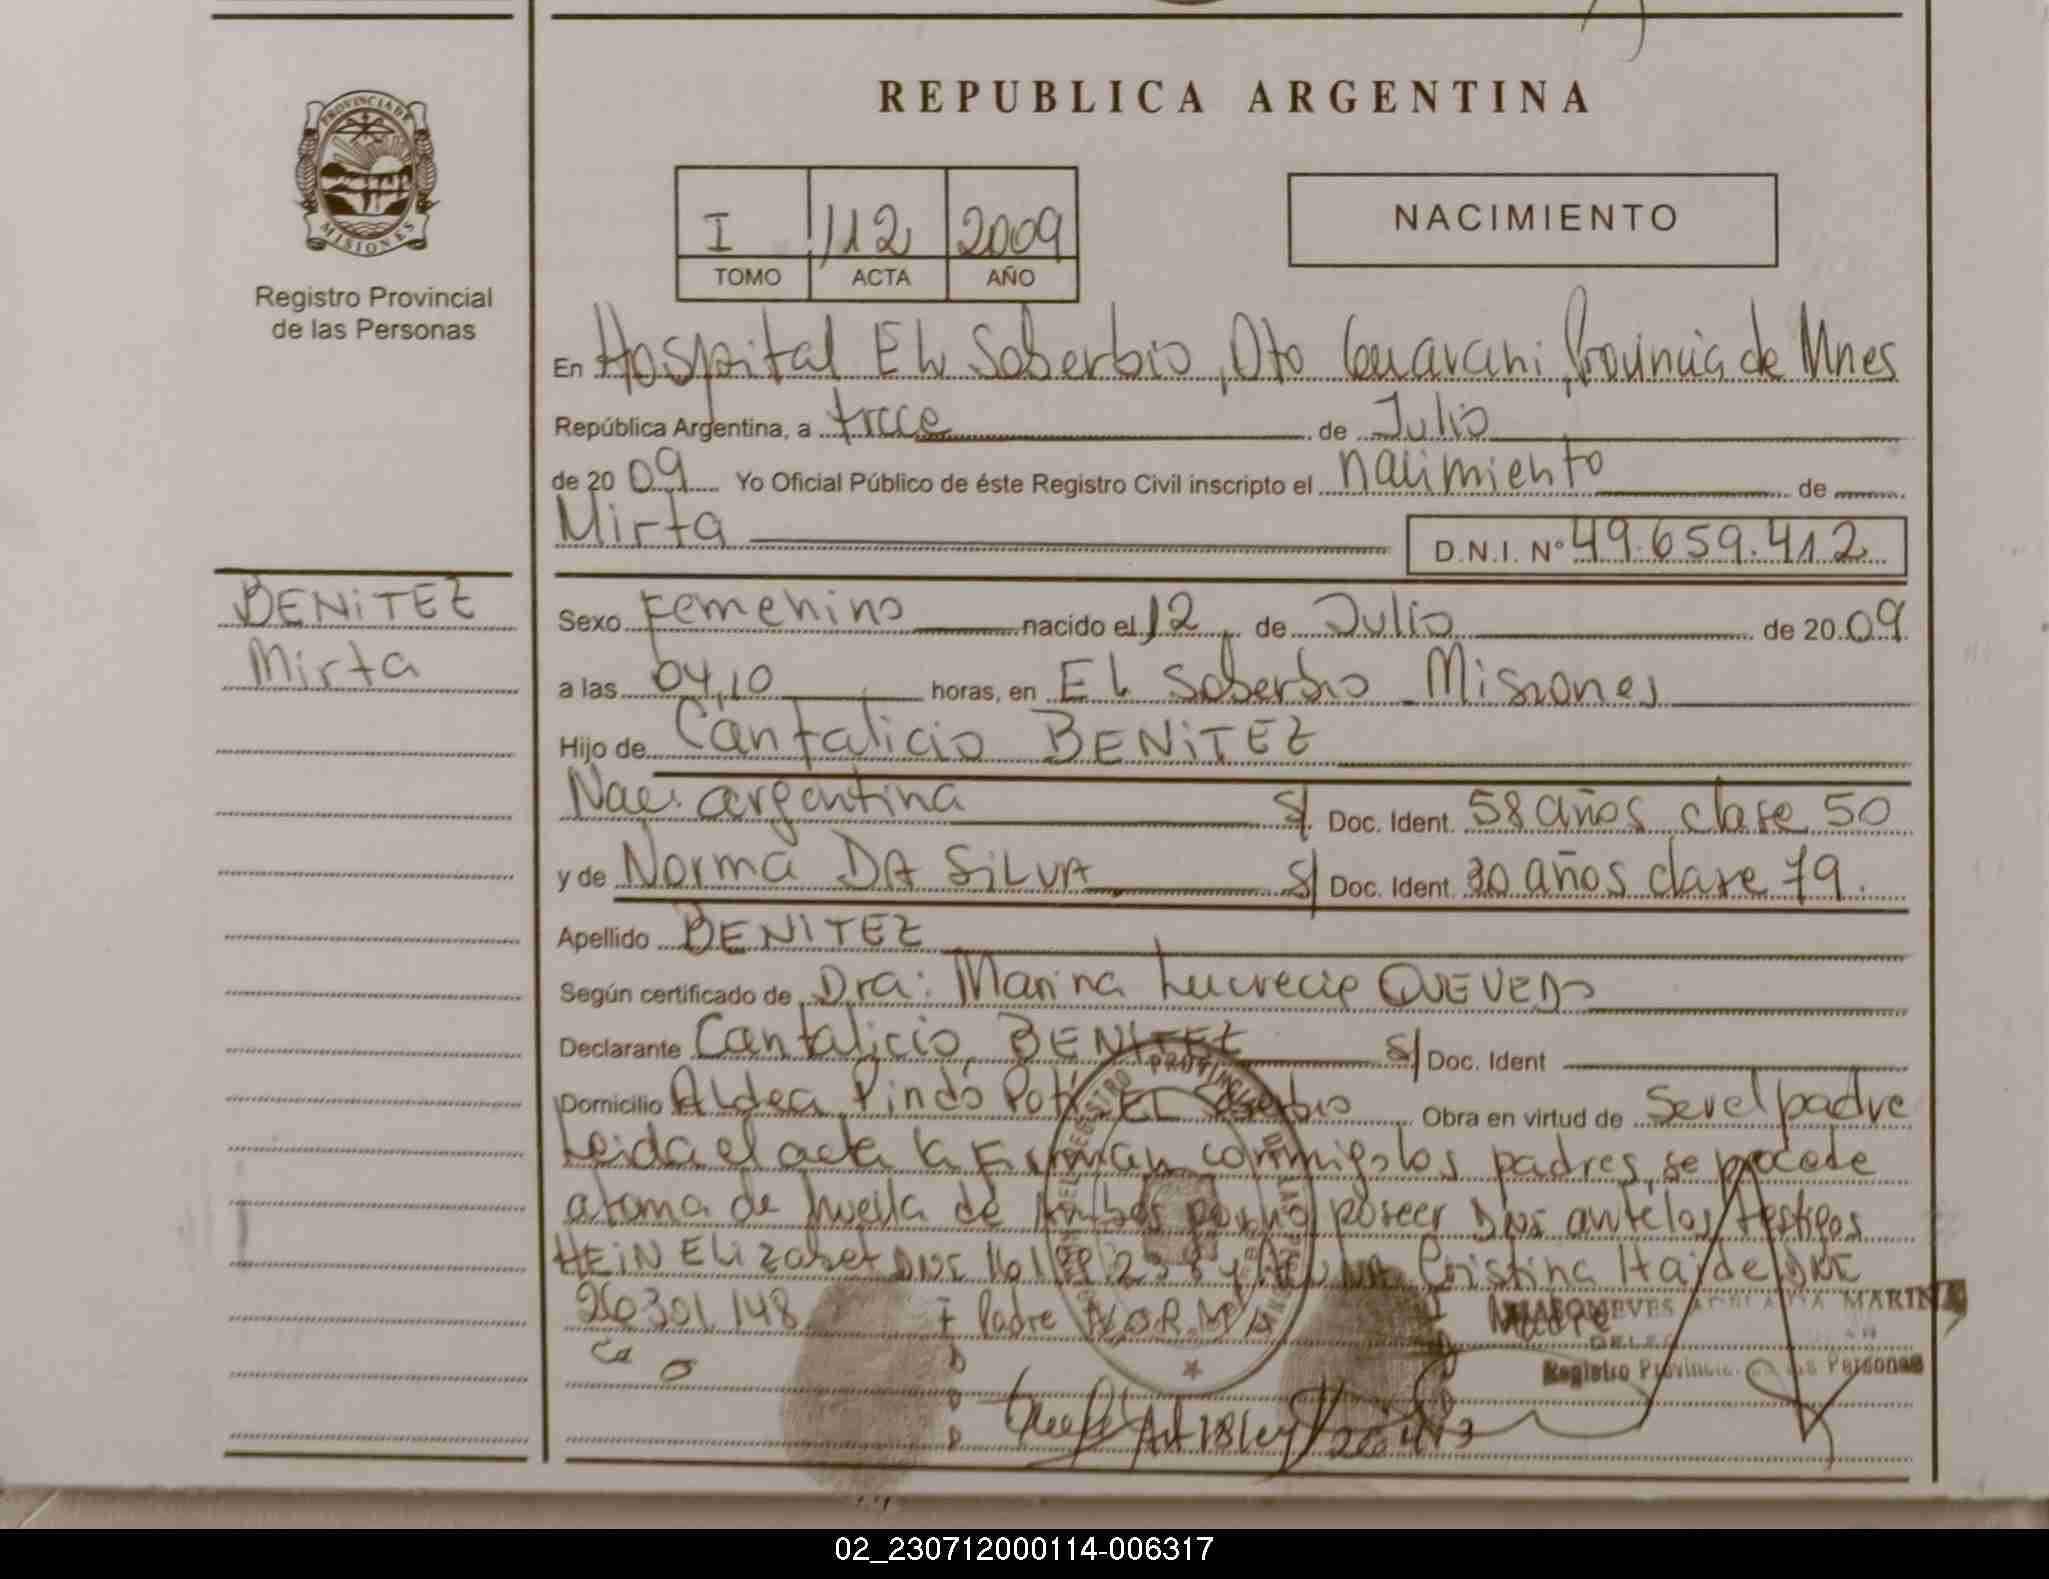 REPUBLICA ARGENTINA
PROVINCIA DE
MISIONES
Registro Provincial
de las Personas
I 112 2009
TOMO ACTA AÑO
NACIMIENTO
En Hospital EL Soberbio, Dto Guarani, Provincia de Mnes
República Argentina, a trece de Julio
de 2009 Yo Oficial Público de éste Registro Civil inscripto el nacimiento de
Mirta D.N.I. Nº 49.659.412
BENiTEZ
Mirta
Sexo Femenino nacido el 12 de Julio de 2009
a las 04,10 horas, en EL Soberbio Misiones
Hijo de Cantalicio BENiTEZ
Nac. argentina S/ Doc. Ident. 58 años clase 50
y de Norma DA SiLVA S/ Doc. Ident. 30 años clase 79.
Apellido BENITEZ
Según certificado de Dra: Marina Lucrecia QUEVEDO
Declarante Cantalicio BENITEZ S/ Doc. Ident
Domicilio Aldea Pindó Potí EL Soberbio Obra en virtud de Ser el padre
Leida el acta la Firman conmigo los padres, se procede
a toma de huella de Ambos por no poseer DNI ante los testigos
HEiN Elizabet DNI Cristina Haide DNI
26301.148 Padre NORMA Madre
MARINA
Registro Provincial de las Personas
Art 18 ley
02_230712000114-006317